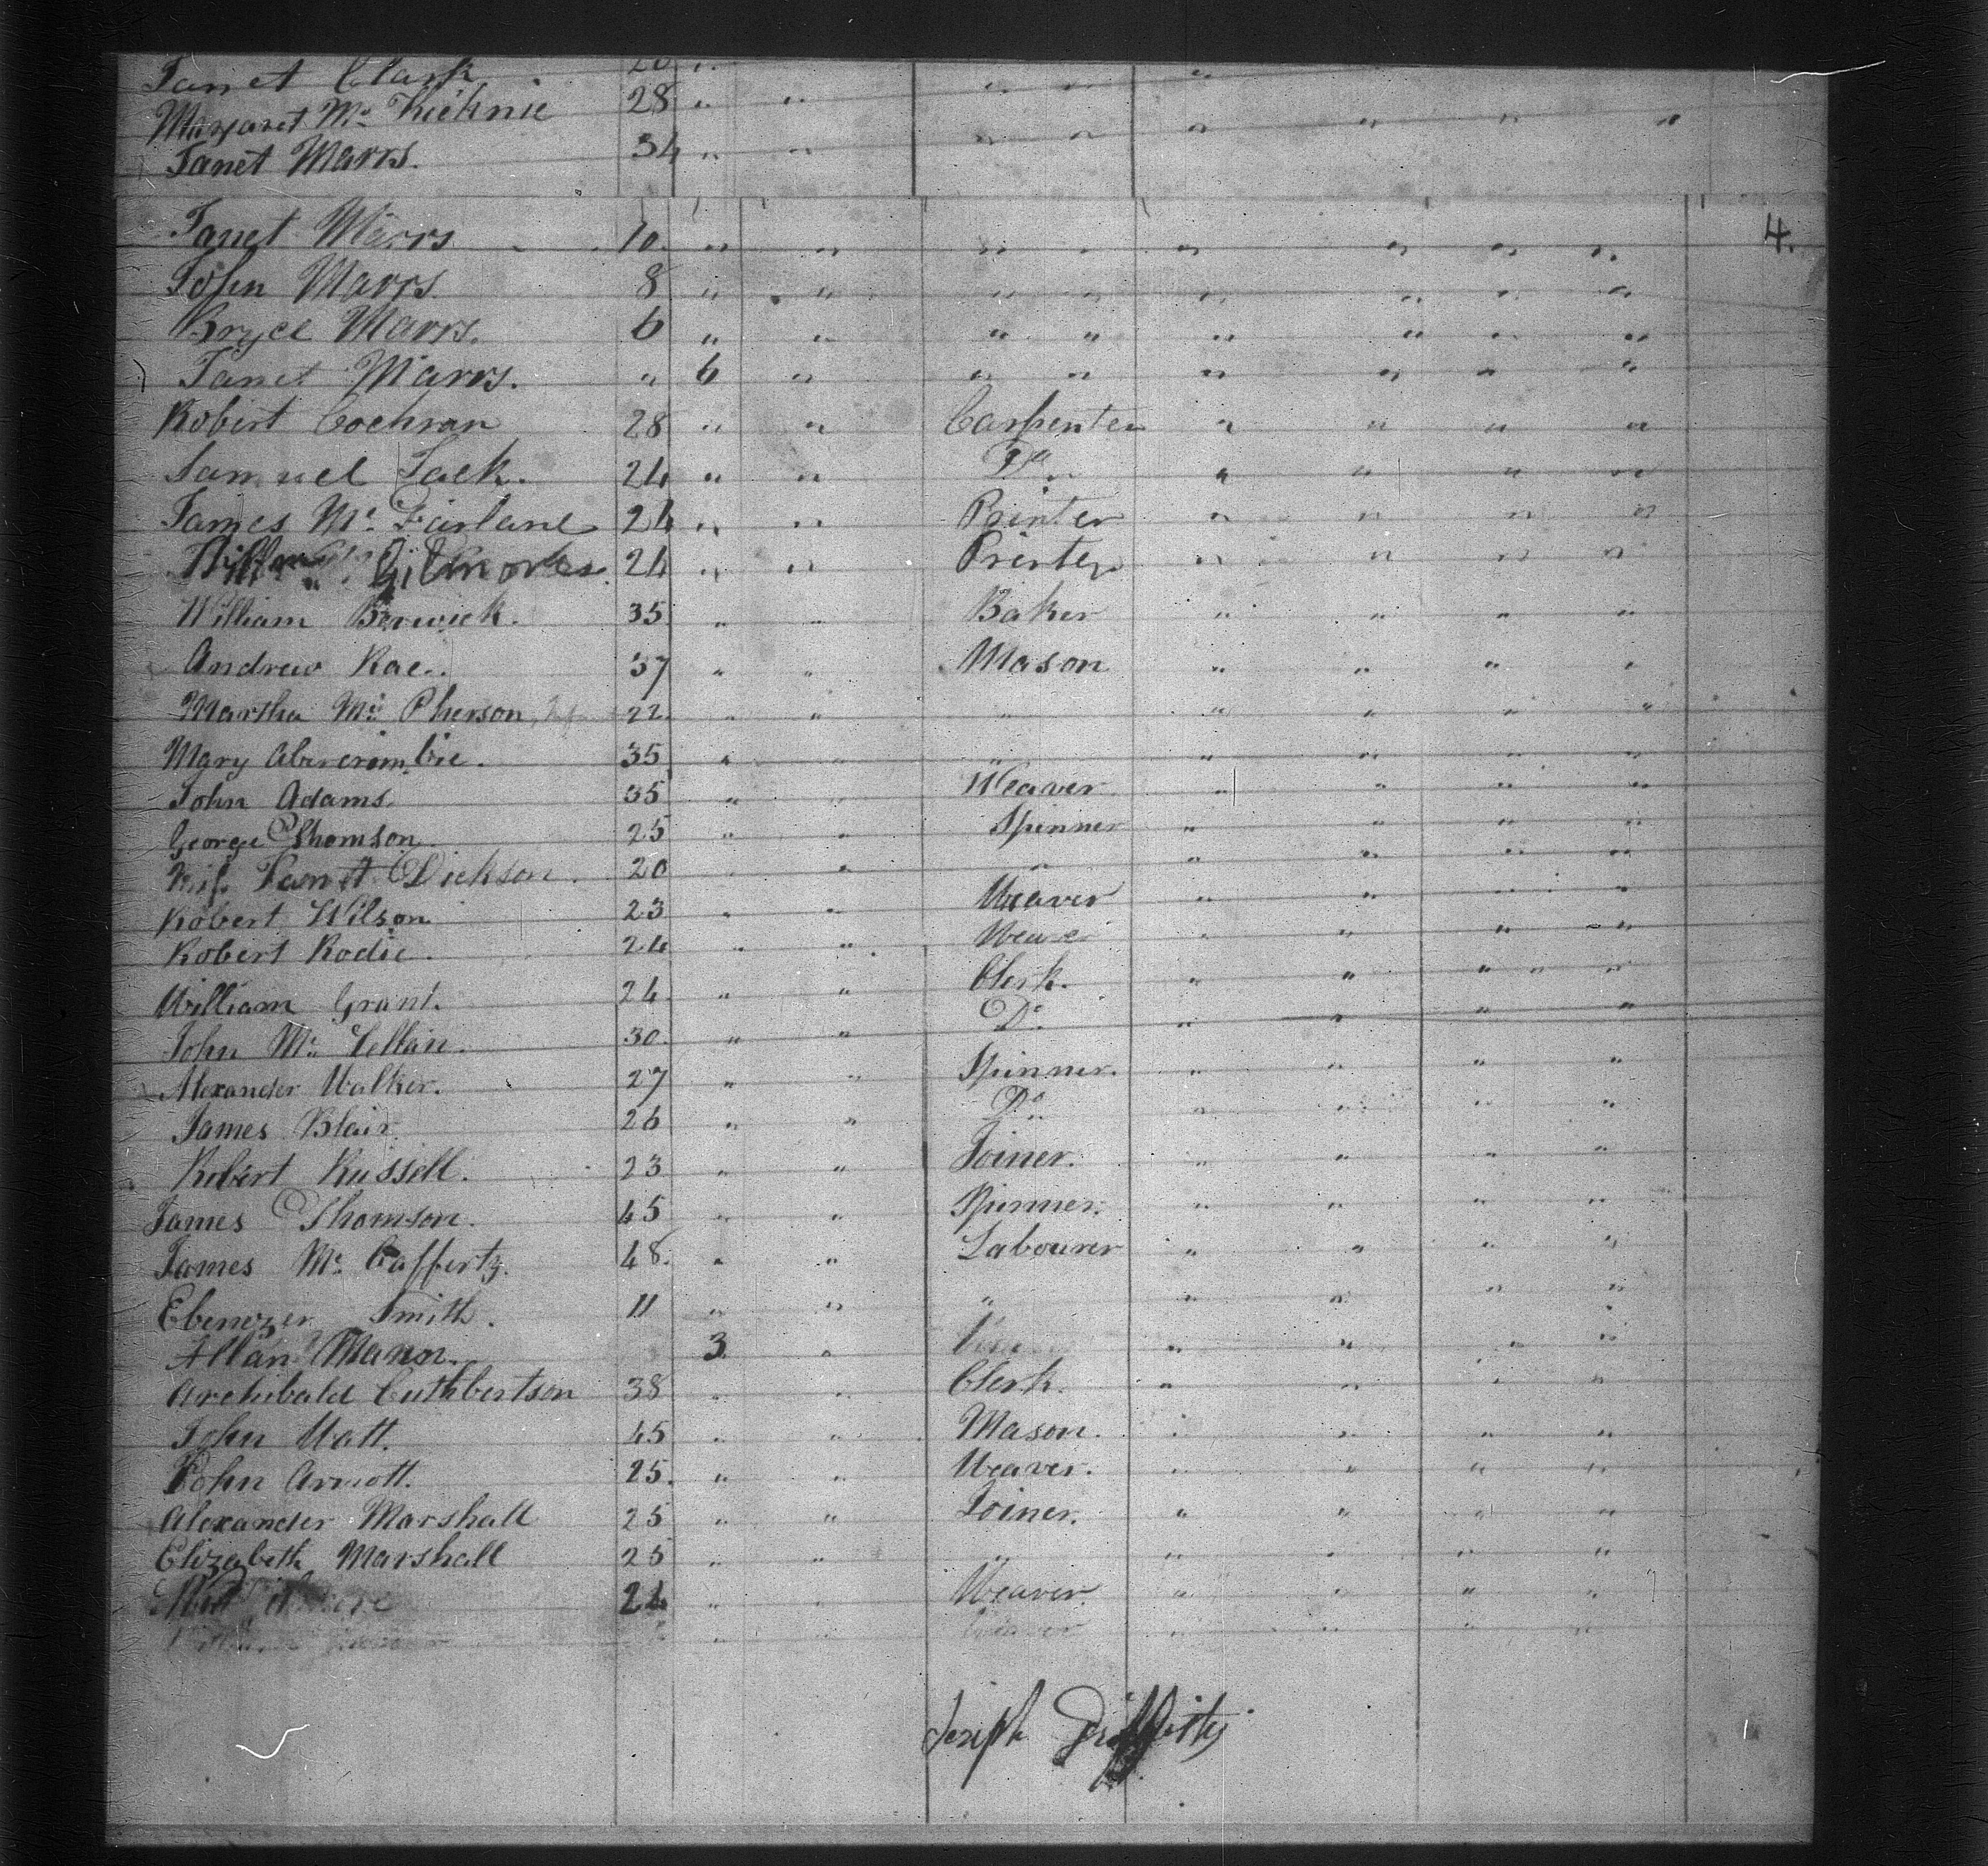 Janet Clark. 20 " "
Margaret Mc Kechnie 28 " " " " " " " "
Janet Marrs. 34 " " " " " " " "
Janet Marrs 10 " " " " " " " " 4.
John Marrs. 8 " " " " " " " "
Bryce Marrs. 6 " " " " " " " "
Janet Marrs. " 6 " " " " " " "
Robert Cochran 28 " " Carpenter " " " "
Samuel Jack. 24 " " Do " " " "
James Mc Farlane 24 " " Printer " " " "
Gilmore 24 " " Printer " " " "
William Berwick. 35 " " Baker " " " "
Andrew Rae. 37 " " Mason " " " "
Martha Mc Pherson 22 " " " " " " "
Mary Abercrombie. 35 " " " " " " "
John Adams 35 " " Weaver " " " "
George Thomson. 25 " " Spinner " " " "
Janet Dickson. 20 " " " " " " "
Robert Wilson. 23 " " Weaver " " " "
Robert Rodie. 24 " " Weaver " " " "
William Grant. 24 " " Clerk. " " " "
John Mc Lellan. 30. " " Do. " " " "
Alexander Walker. 27 " " Spinner. " " " "
James Blair. 26 " " Do " " " "
Robert Russell. 23 " " Joiner. " " " "
James Thomson. 45 " " Spinner. " " " "
James Mc Caffertz. 48. " " Labourer " " " "
Ebenezer Smith. 11 " " " " " " "
Allan Mann. 3 " " " " "
Archibald Cuthbertson 38 " " Clerk. " " " "
John Watt. 45 " " Mason. " " " "
John Arnott. 25. " " Weaver. " " " "
Alexander Marshall 25 " " Joiner. " " " "
Elizabeth Marshall 25 " " " " " " "
24 " " Weaver. " " " "
Weaver " " " "
Joseph Griffiths